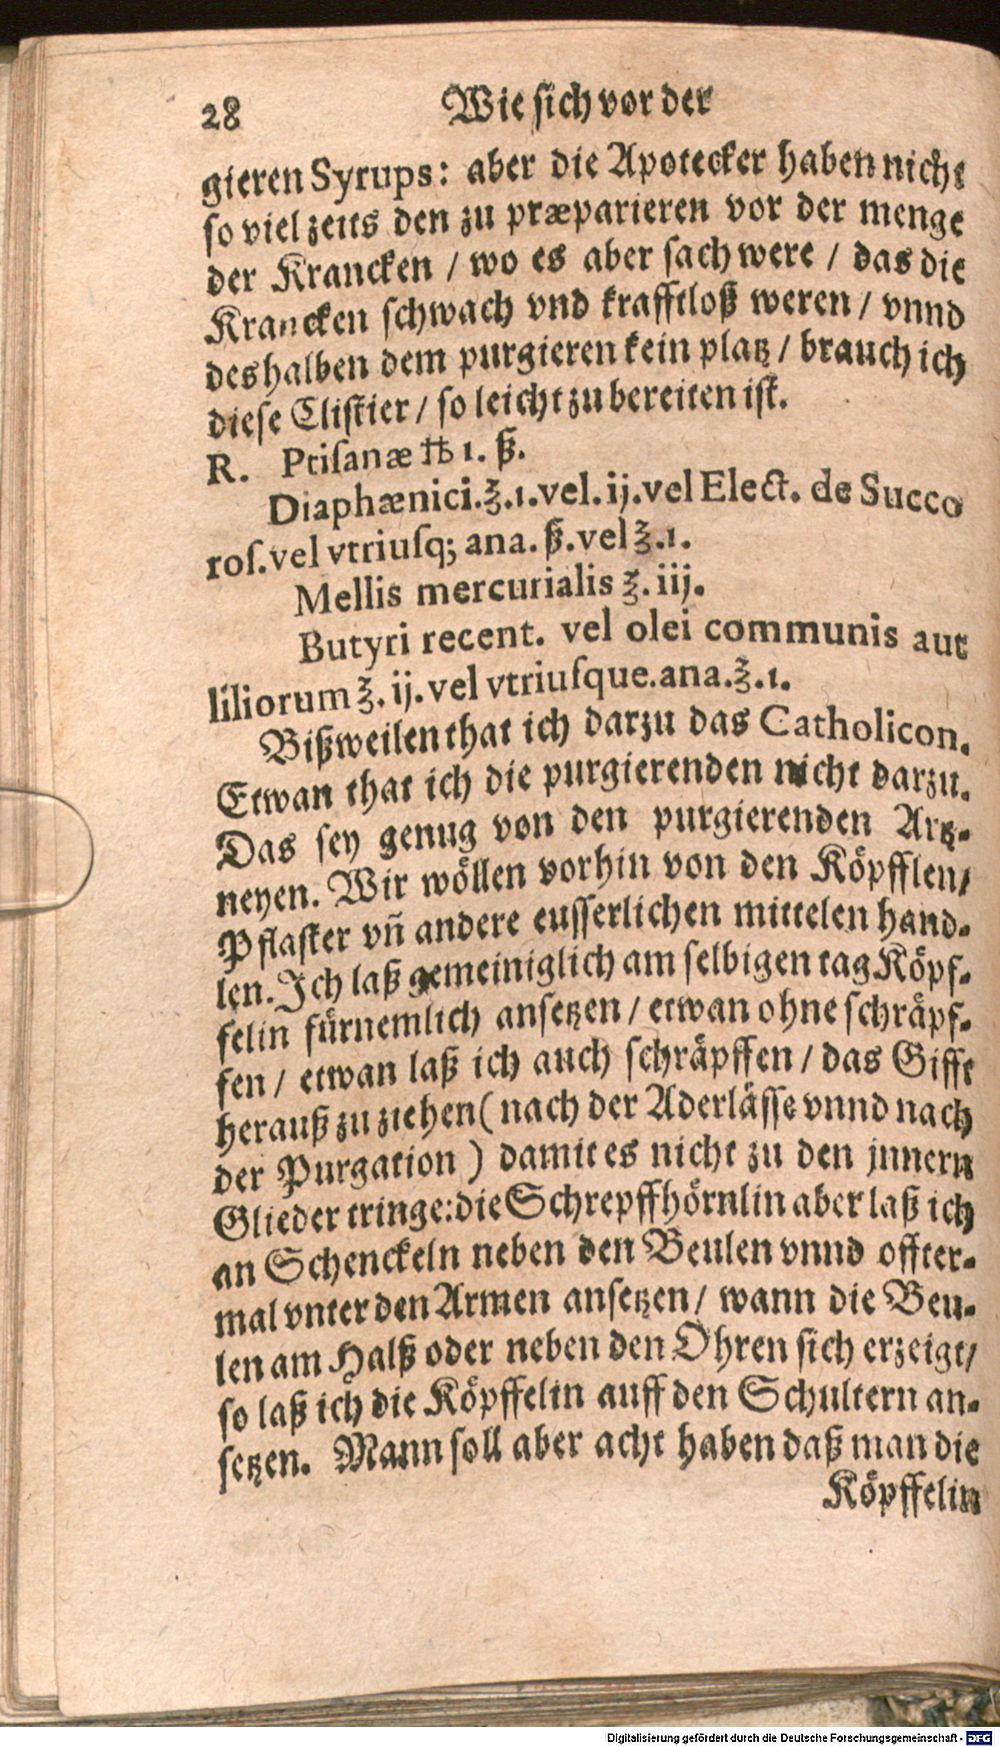 28 Wie sich vor der
gieren Syrups: aber die Apotecker haben nicht
so viel zeits den zu præparieren vor der menge
der Krancken / wo es aber sach were / das die
Krancken schwach vnd krafftloß weren / vnnd
deshalben dem purgieren kein platz / brauch ich
diese Clistier / so leicht zu bereiten ist.
R. Ptiſanæ ℔ 1. ß.
Diaphænici.℥.1.vel.ij.vel Elect. de Succo
roſ.vel vtriuſq; ana.ß.vel ℥.1.
Mellis mercurialis ℥.iij.
Butyri recent. vel olei communis aut
liliorum ℥.ij.vel vtriuſque.ana.℥.1.
Bißweilen that ich darzu das Catholicon.
Etwan that ich die purgierenden nicht darzu.
Das sey genug von den purgierenden Artz-
neyen. Wir wöllen vorhin von den Köpfflen/
Pflaster vñ andere eusserlichen mittelen hand-
len. Ich laß gemeiniglich am selbigen tag Köpf-
felin fürnemlich ansetzen / etwan ohne schräpf-
fen / etwan laß ich auch schräpffen / das Gifft
herauß zu ziehen ( nach der Aderlässe vnnd nach
der Purgation ) damit es nicht zu den jnnern
Glieder tringe: die Schrepffhörnlin aber laß ich
an Schenckeln neben den Beulen vnnd offter-
mal vnter den Armen ansetzen / wann die Beu-
len am Halß oder neben den Ohren sich erzeigt /
so laß ich die Köpffelin auff den Schultern an-
setzen. Mann soll aber acht haben daß man die
Köpffelin
Digitalisierung gefördert durch die Deutsche Forschungsgemeinschaft - DFG